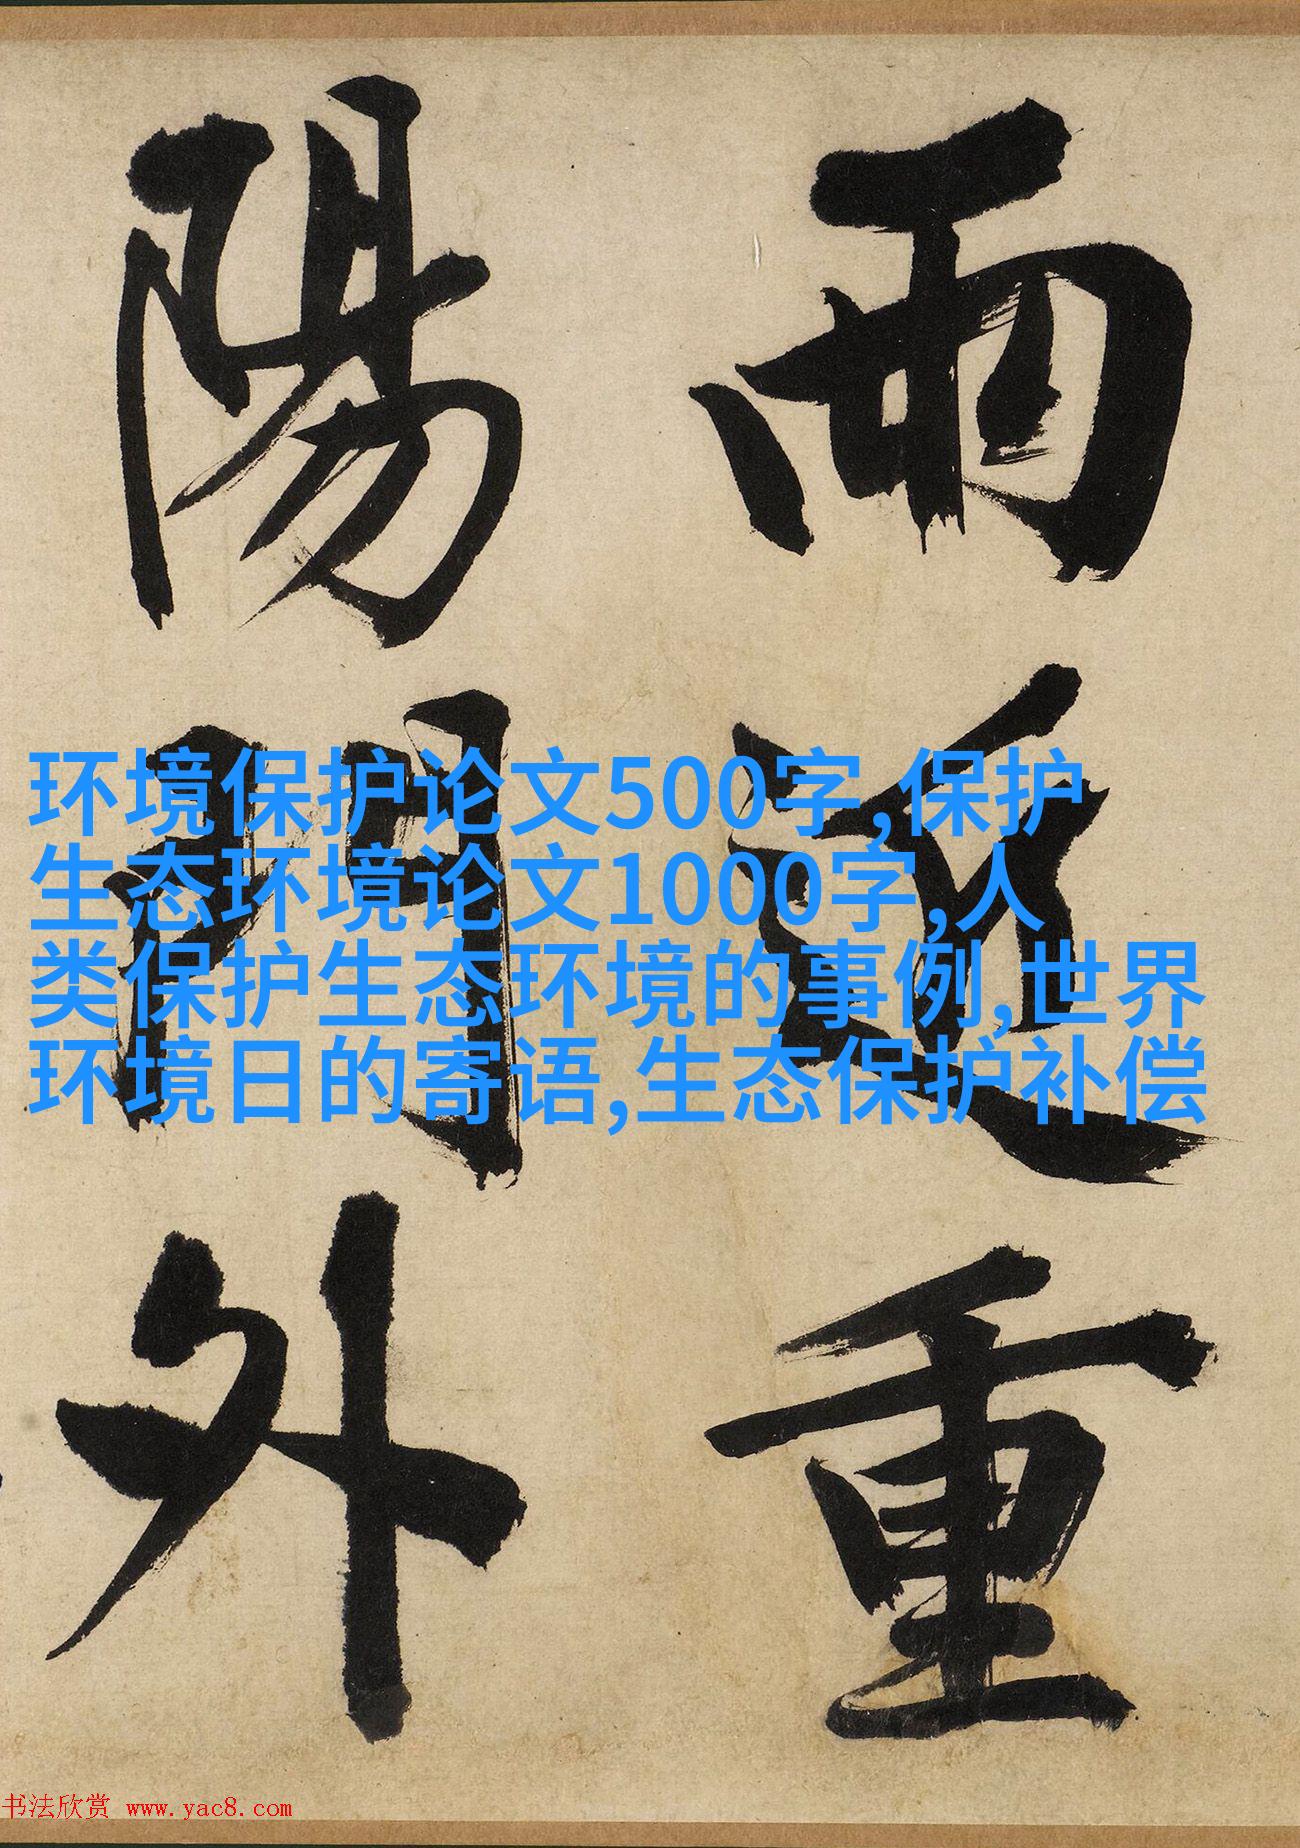 雨近重
陽門外
环境保护论文500字,保护
生态环境论文1000字,人
类保护生态环境的事例,世界
环境日的寄语,生态保护补偿
书法欣赏 www.yac8.com